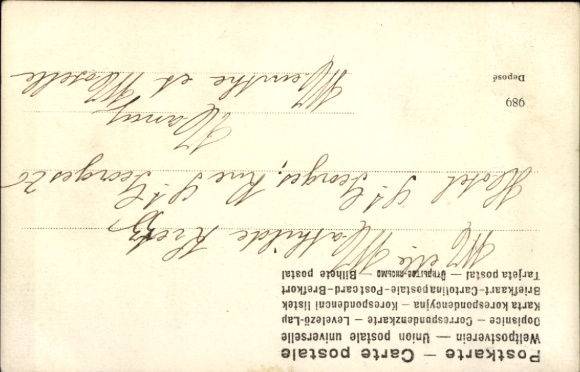 Postkarte – Carte postale
Weltpostverein — Union postale universelle
Dopisnice – Correspondenzkarte – Levelező-Lap
Karta korespondencyjna – Korespondencni listek
Briefkaart-Cartolina postale-Postcard-Brefkort
Tarjeta postal — Открытое письмо — Bilhete postal
Melle Mathilde Kretz
Hotel St Georges, Rue St Georges 26
Nancy
Meurthe et Moselle
989
Deposé